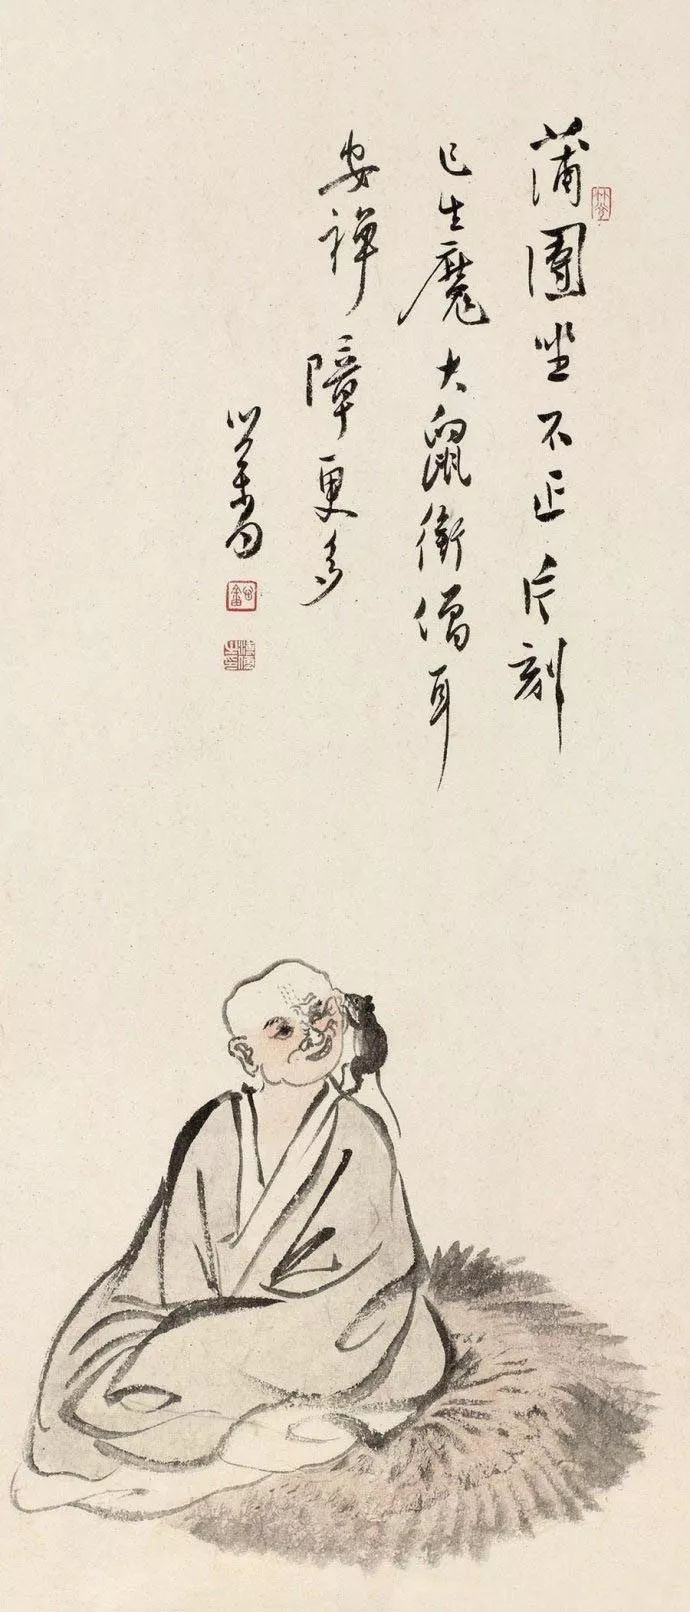 蒲團坐不正片刻
已生魔大鼠銜僧耳
安禪障更多
心畬